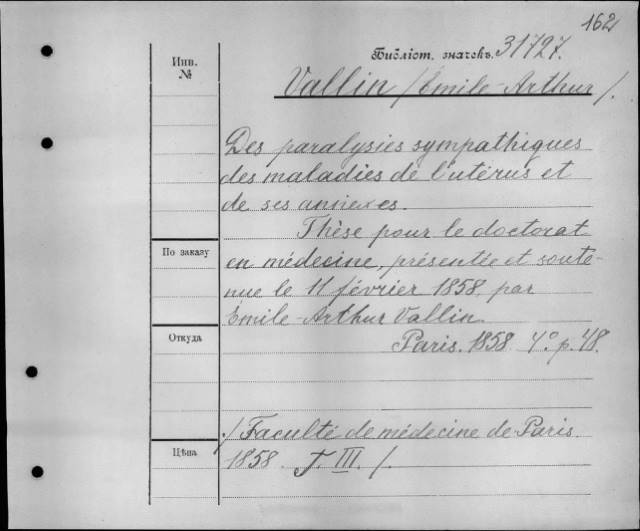 162
Инв.
№
Библіот. значекъ. 31727.
Vallin /Émile-Arthur/.
Des paralysies sympathiques
des maladies de l'utérus et
de ses annexes.
Thèse pour le doctorat
По заказу
en médecine, présentée et soute-
nue le 11 février 1858, par
Émile-Arthur Vallin.
Откуда
Paris. 1858. 4º. p. 48.
/Faculté de médecine de Paris.
Цѣна
1858. T. III. /.